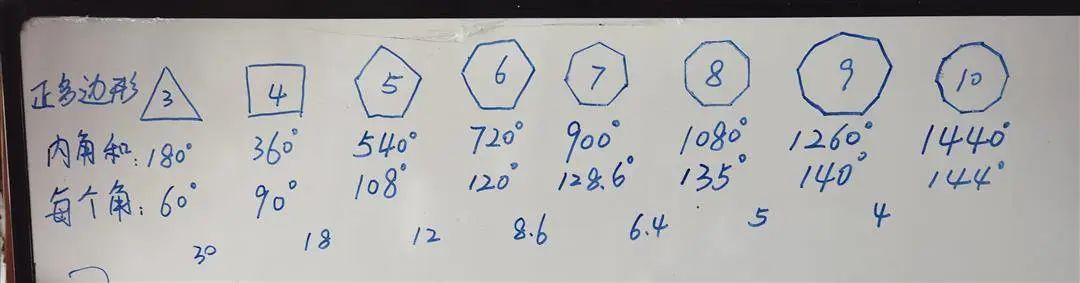 正多边形 3 4 5 6 7 8 9 10
内角和: 180° 360° 540° 720° 900° 1080° 1260° 1440°
每个角: 60° 90° 108° 120° 128.6° 135° 140° 144°
30 18 12 8.6 6.4 5 4